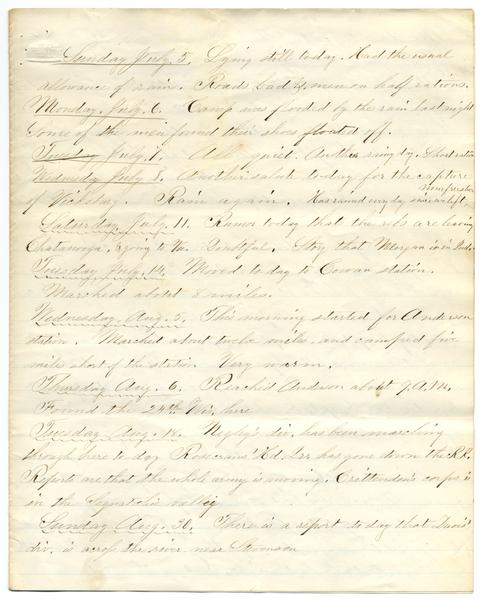 Sunday July 5. Lying still today. Had the usual
allowance of rain. Roads bad & men on half rations.
Monday July 6. Camp was flooded by the rain last night
Some of the men found their shoes floated off.
Tuesday July 7. All quiet. Another rainy day. Short rations
Wednesday July 8. Another salute to day for the capture
of Vicksburg. Rain again. Has rained every day since we left
Murfreesboro
Saturday July 11. Rumor today that the rebs are leaving
Chatanooga, going to Va. Doubtful. Story that Morgan is in Ind.
Tuesday July 14. Moved to day to Cowan station.
Marched about 8 miles.
Wednesday Aug. 5. This morning started for Anderson
station. Marched about twelve miles and camped five
miles short of the station. Very warm.
Thursday Aug. 6. Reached Anderson about 9 A.M.
Found the 24th Wis. here
Tuesday Aug. 18. Negley's div. has been marching
through here to day Rosecrans' Hd. Qrs has gone down the R.R.
Reports are that the whole army is moving. Crittenden's corps is
in the Sequatchie valley
Sunday Aug. 30. There is a report to day that Davis'
div. is across the river near Stevenson